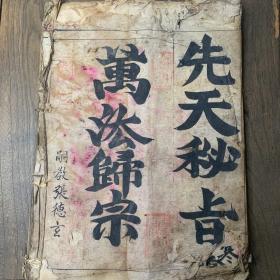 先天秘旨
萬法歸宗
嗣教張德玄